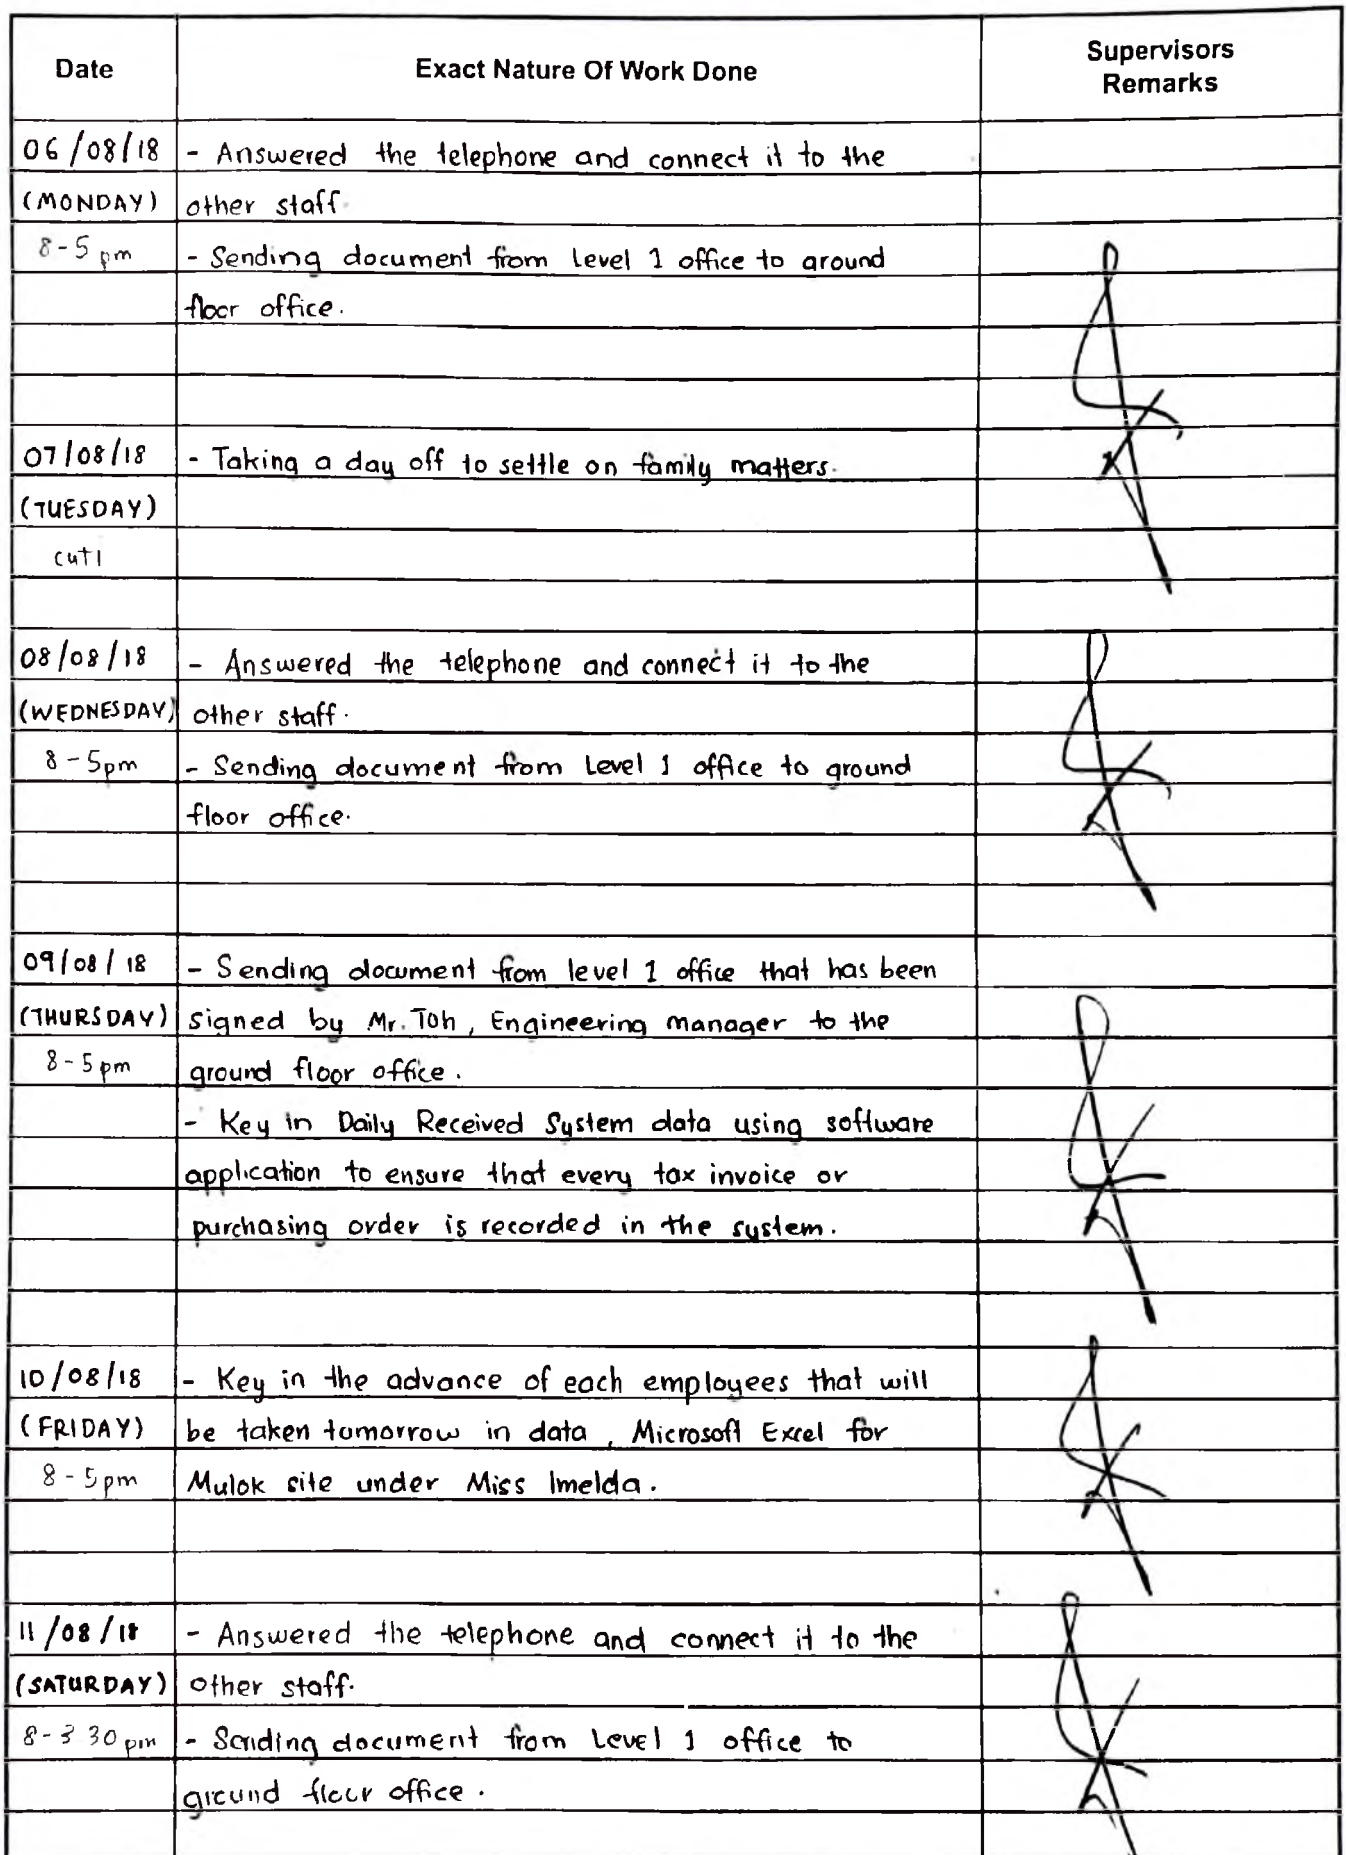 Date Exact Nature Of Work Done Supervisors
Remarks
06/08/18 - Answered the telephone and connect it to the
(MONDAY) other staff.
8-5 pm - Sending document from Level 1 office to ground
floor office.
07/08/18 - Taking a day off to settle on family matters.
(TUESDAY)
cuti
08/08/18 - Answered the telephone and connect it to the
(WEDNESDAY) other staff.
8-5pm - Sending document from Level 1 office to ground
floor office.
09/08/18 - Sending document from level 1 office that has been
(THURSDAY) signed by Mr. Toh, Engineering manager to the
8-5pm ground floor office.
- Key in Daily Received System data using software
application to ensure that every tax invoice or
purchasing order is recorded in the system.
10/08/18 - Key in the advance of each employees that will
(FRIDAY) be taken tomorrow in data, Microsoft Excel for
8-5pm Mulok site under Miss Imelda.
11/08/18 - Answered the telephone and connect it to the
(SATURDAY) other staff.
8-3 30 pm - Sending document from Level 1 office to
ground floor office.